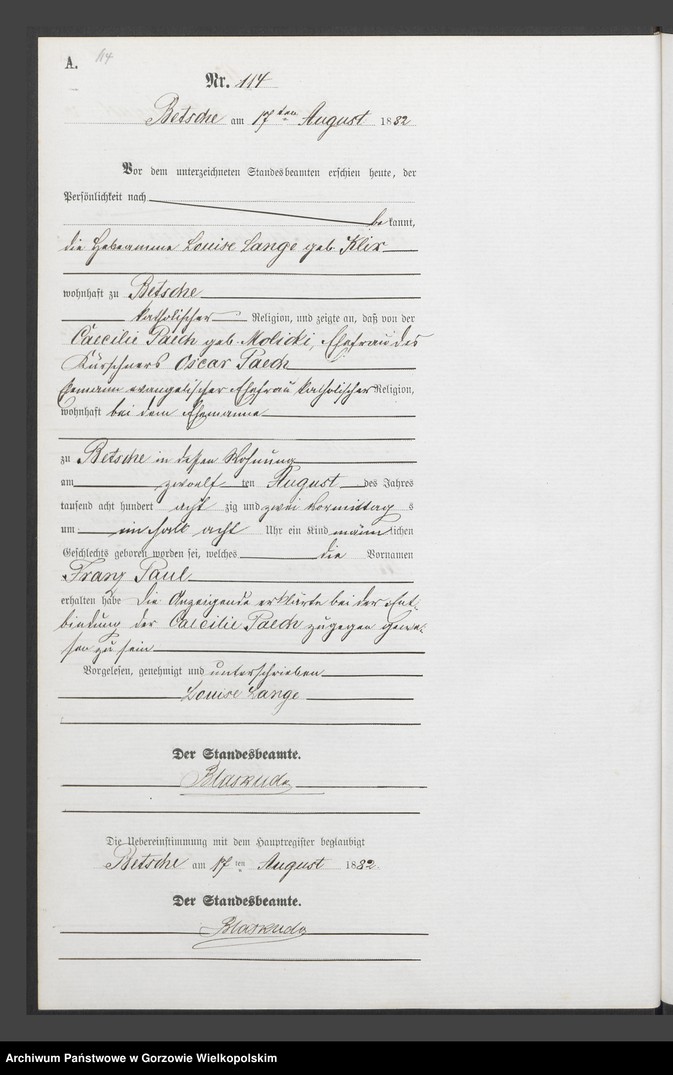 A. 114
Nr. 114
Betsche am 17ten August 1882
Vor dem unterzeichneten Standesbeamten erschien heute, der
Persönlichkeit nach
bekannt,
die Hebeamme Louise Lange geb. Klix
wohnhaft zu Betsche
katholischer Religion, und zeigte an, daß von der
Caecilie Paech geb. Molicki, Ehefrau des
Kürschners Oscar Paech
Ehemann evangelischer Ehefrau katholischer Religion,
wohnhaft bei dem Ehemanne
zu Betsche in dessen Wohnung
am zwoelf ten August des Jahres
tausend acht hundert acht zig und zwei Vormittag s
um ein halb acht Uhr ein Kind männ lichen
Geschlechts geboren worden sei, welches die Vornamen
Franz Paul
erhalten habe Die Anzeigende erklärte bei der Ent-
bindung der Caecilie Paech zugegen gewe-
sen zu sein
Vorgelesen, genehmigt und unterschrieben
Louise Lange
Der Standesbeamte.
Die Uebereinstimmung mit dem Hauptregister beglaubigt
Betsche am 17ten August 1882
Der Standesbeamte.
Archiwum Państwowe w Gorzowie Wielkopolskim